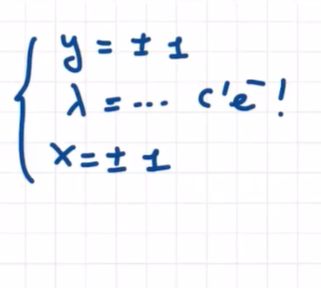 y = ± 1
λ = ... c'è !
x = ± 1